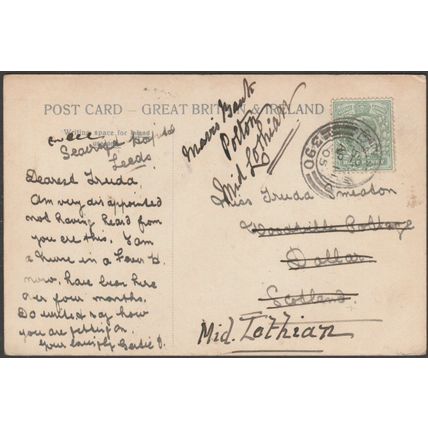 POST CARD – GREAT BRITAIN & IRELAND
Writing space for Inland
Seacroft Hospital
Leeds
Dearest Truda,
Am very disappointed
not having heard from
you ere this. I am
a Nurse in a Fever H.
now, have been here
over four months.
Do write & say how
you are getting on.
Your
Mavis Bank
Polton
Mid Lothian
Miss Truda Smeaton
Cottage
Dollar
Scotland.
Mid. Lothian
390
05